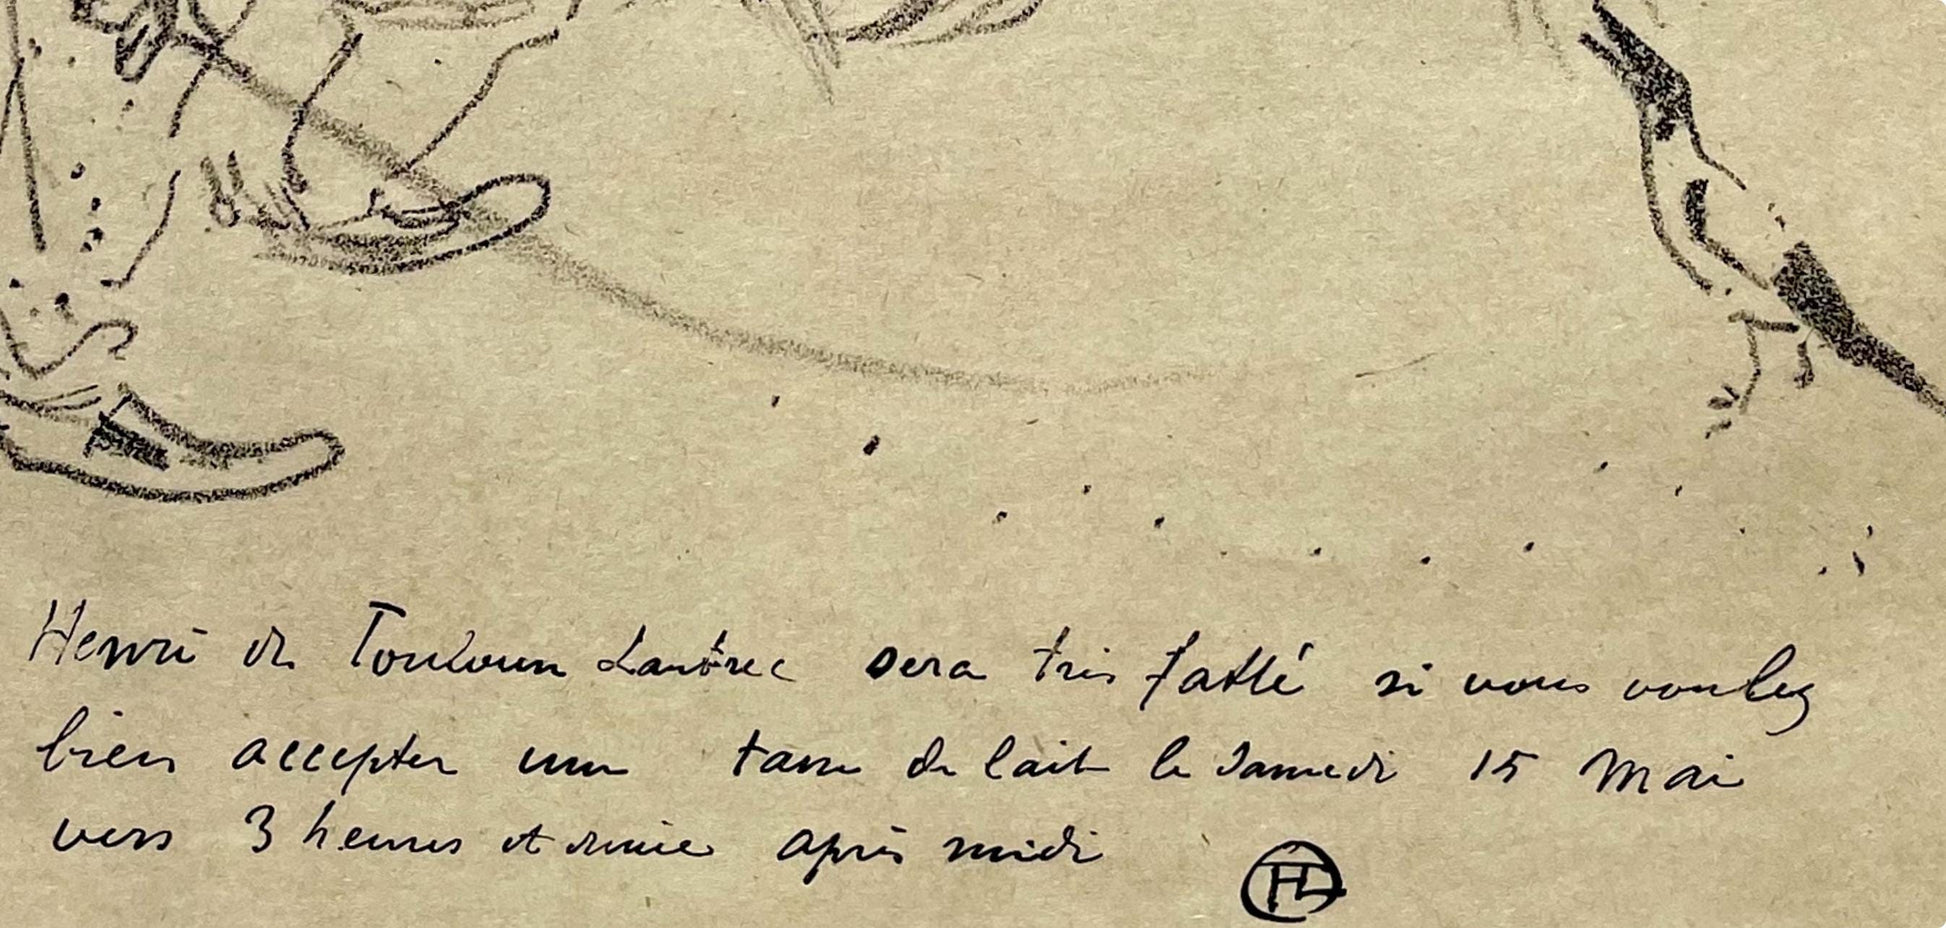 Henri de Toulouse Lautrec sera très flatté si vous voulez
bien accepter une tasse de lait le Samedi 15 Mai
vers 3 heures et demie après midi
HTL